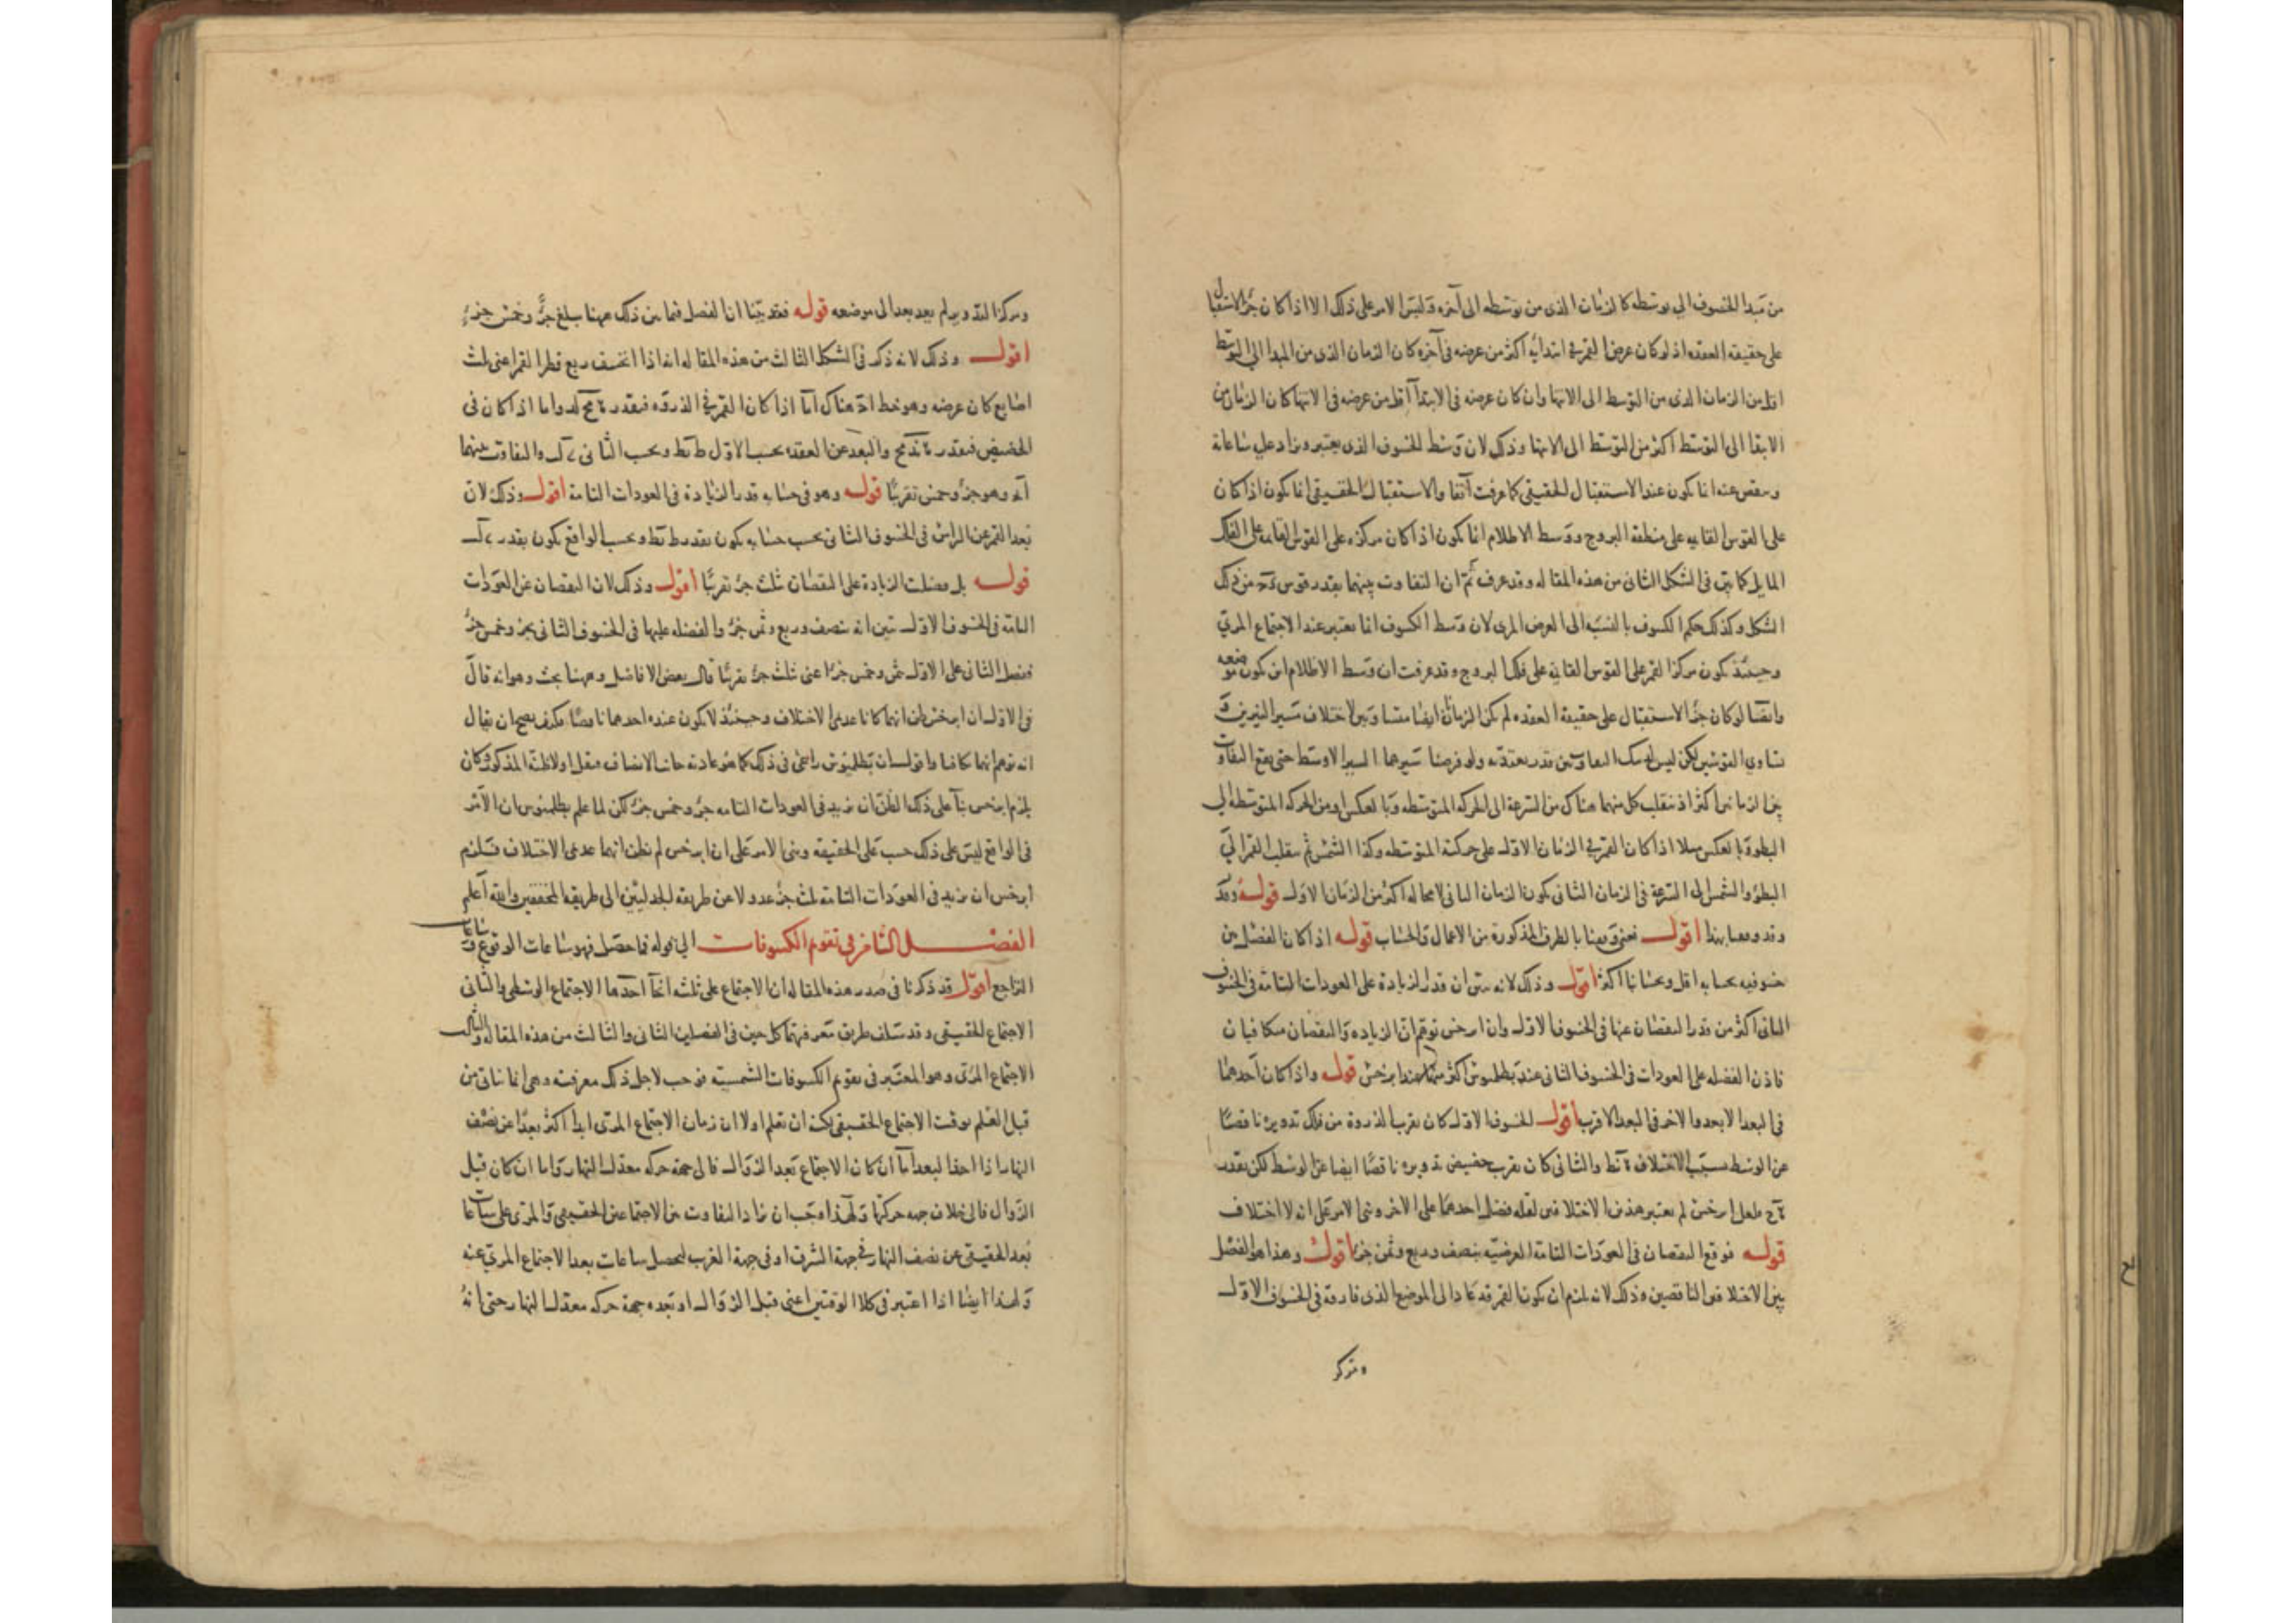 من مبدا الخسوف الي توسطه كالزمان الذى من توسطه الى آخره وليس الامر على ذلك الا اذا كان جزء الاستقبال
على حقيقه العقده اذ لو كان عرض القمر في ابتدائه اكثر من عرضه في آخره كان الزمان الذى من المبدا الى التوسط
اقل من الزمان الذى من التوسط الى الانتها وان كان عرضه فى الابتدآ اقل من عرضه فى الانتها كان الزمان من
الابتدا الى التوسط اكثر من التوسط الى الانتها وذلك لان وسط الخسوف الذى يعتبر ويزاد على ساعاته
وينقص عنه انما يكون عند الاستقبال الحقيقى كما عرفت آنفا والاستقبال الحقيقى انما يكون اذا كان
على القوس القايمه على منطقة البروج ووسط الاظلام انما يكون اذا كان مركزه على القوس القايمه على الفلك
المايل كما بين فى الشكل الثانى من هذه المقاله وقد عرف ثم ان التفاوت بينهما بقدر قوس من ذلك
الشكل وكذلك حكم الكسوف بالنسبة الى العرض المرى لان وسط الكسوف انما يعتبر عند الاجتماع المرئ
وحينئذ يكون مركز القمر على القوس القايمه على فلك البروج وقد عرفت ان وسط الاظلام اين يكون موضعه
وايضا لو كان جزء الاستقبال على حقيقة العقده لم يكن الزمانان ايضا متساويين لاختلاف مسير النيرين فى
تساوى القوسين لكن ليس لذلك التفاوت قدر يعتد به ولو فرضنا سيرهما السير الاوسط حتى يقع التفاوت
بين الزمانين اكثر اذ ينقلب كل منهما هناك من السرعة الى الحركه المتوسطه وبالعكس او من الحركه المتوسطه الى
البطؤ وبالعكس مثلا اذا كان القمر في الزمان الاول على حركته المتوسطه وكذا الشمس ثم ينقلب القمر الى
البطؤ والشمس الى السرعة فى الزمان الثانى يكون الزمان الثانى لا محاله اكثر من الزمان الاول قوله وقد
وقد وقعنا بهذا اقول نعنى وقعنا بالطرق المذكورة من الاعمال والحساب قوله اذا كان الفضل بين
خسوفيه بحسابه اقل وبحسابنا اكثر اقول وذلك لانه بين ان قدر الزيادة على العودات التامة فى الخسوف
الثانى اكثر من قدر النقصان عنها فى الخسوف الاول وان ابرخس توهم ان الزياده والنقصان متكافيان
فاذن الفضله على العودات فى الخسوف الثانى عند بطلميوس اكثر منها عند ابرخس قوله واذا كان احدهما
فى البعد الابعد والاخر فى البعد الاقرب اقول الخسوف الاول كان بقرب الذروة من فلك تدويره ناقصًا
عن الوسط بسبب الاختلاف ة نط والثانى كان بقرب حضيض تدويره ناقصًا ايضا عن الوسط لكن بقدر
فلعل ابرخس لم يعتبر هذين الاختلافين لقله فضل احدهما على الاخر وبنى الامر على انه لا اختلاف
قوله فوقع النقصان فى العودات التامة العرضيه بنصف وربع وثمن جزء اقول وهذا هو الفضل
بين الاختلافين الناقصين وذلك لانه يلزم ان يكون القمر قد عاد الى الموضع الذى فارقه فى الخسوف الاول
ومركز
ومركز التدوير لم يعد بعد الى موضعه قوله فقد بينا ان الفضل فيما بين ذلك ههنا يبلغ جزء وخمس جزء
اقول وذلك لانه ذكر فى الشكل الثالث من هذه المقاله انه اذا انخسف ربع قطر القمر اعنى ثلث
اصابع كان عرضه وهو خط هناك اما اذا كان القمر في الذروه فبقدر ة مح لد واما اذا كان فى
الحضيض فبقدر ة ند مح والبعد عن العقده بحسب الاول ط نط وبحسب الثانى ى ك والتفاوت بينهما
وهو جزء وخمس تقريبًا قوله وهو فى حسابه قدر الزيادة فى العودات التامة اقول وذلك لان
بعد القمر عن الراس فى الخسوف الثانى بحسب حسابه يكون بقدر ط نط وبحسب الواقع يكون بقدر ى ك
قوله بل فضلت الزيادة على النقصان ثلث جزء تقريبًا اقول وذلك لان النقصان عن العودات
التامة فى الخسوف الاول تبين انه بنصف وربع وثمن جزء والفضله عليها فى الخسوف الثانى بجزء وخمس جزء
ففضل الثانى على الاول ثمن وخمس جزء اعنى ثلث جزء تقريبًا قال بعض الافاضل وههنا بحث وهو انه قال
فى الاول ان ابرخس ظن انهما كانا عديمى الاختلاف وحينئذ لا يكون عنده احدهما ناقصًا فكيف يصح ان يقال
انه توهم انهما تكافيا واقول ان بطلميوس راعى فى ذلك كما هو عادته جانب الانصاف فنقل اولا ظنه المذكور وكان
يلزم ابرخس بنآ على ذلك الظن ان يزيد فى العودات التامه جزء وخمس جزء لكن لما علم بطلميوس ان الامر
فى الواقع ليس على ذلك حسب على الحقيقه وبنى الامر على ان ابرخس لم يظن انهما عديمى الاختلاف فيلزم
ابرخس ان يزيد فى العودات التامة ثلث جزء عدولا عن طريقه الجدليين الى طريقه المحققين والله اعلم
الفصل الثامن فى تقويم الكسوفات الى قوله فما حصل فهو ساعات الوقوع وساعات
التراجع اقول قد ذكرنا فى صدر هذه المقاله ان الاجتماع على ثلثه انحآ احدها الاجتماع الوسطى والثانى
الاجتماع الحقيقى وقد سلف طريق معرفتهما كل حين فى الفصلين الثانى والثالث من هذه المقاله والثالث
الاجتماع المرئى وهو المعتبر فى تقويم الكسوفات الشمسيه فوجب لاجل ذلك معرفته وهى انما تتاتى من
قبل العلم بوقت الاجتماع الحقيقى لكنه ان تعلم اولا ان زمان الاجتماع المرئى ابدا اكثر بعدًا عن نصف
النهار اذا اخذا لبعد اما ان كان الاجتماع بعد الزوال فالى جهة حركه معدل النهار واما ان كان قبل
الزوال فالى خلاف جهه حركتها ولهذا وجب ان يزاد التفاوت بين الاجتماعين الحقيقى والمرئى على ساعات
بعد الحقيقى عن نصف النهار في جهة الشرق او فى جهة الغرب ليحصل ساعات بعد الاجتماع المرئى عنه
ولهذا ايضا اذا اعتبر فى كلا الوقتين اعنى قبل الزوال او بعده جهة حركه معدل النهار حتى انه